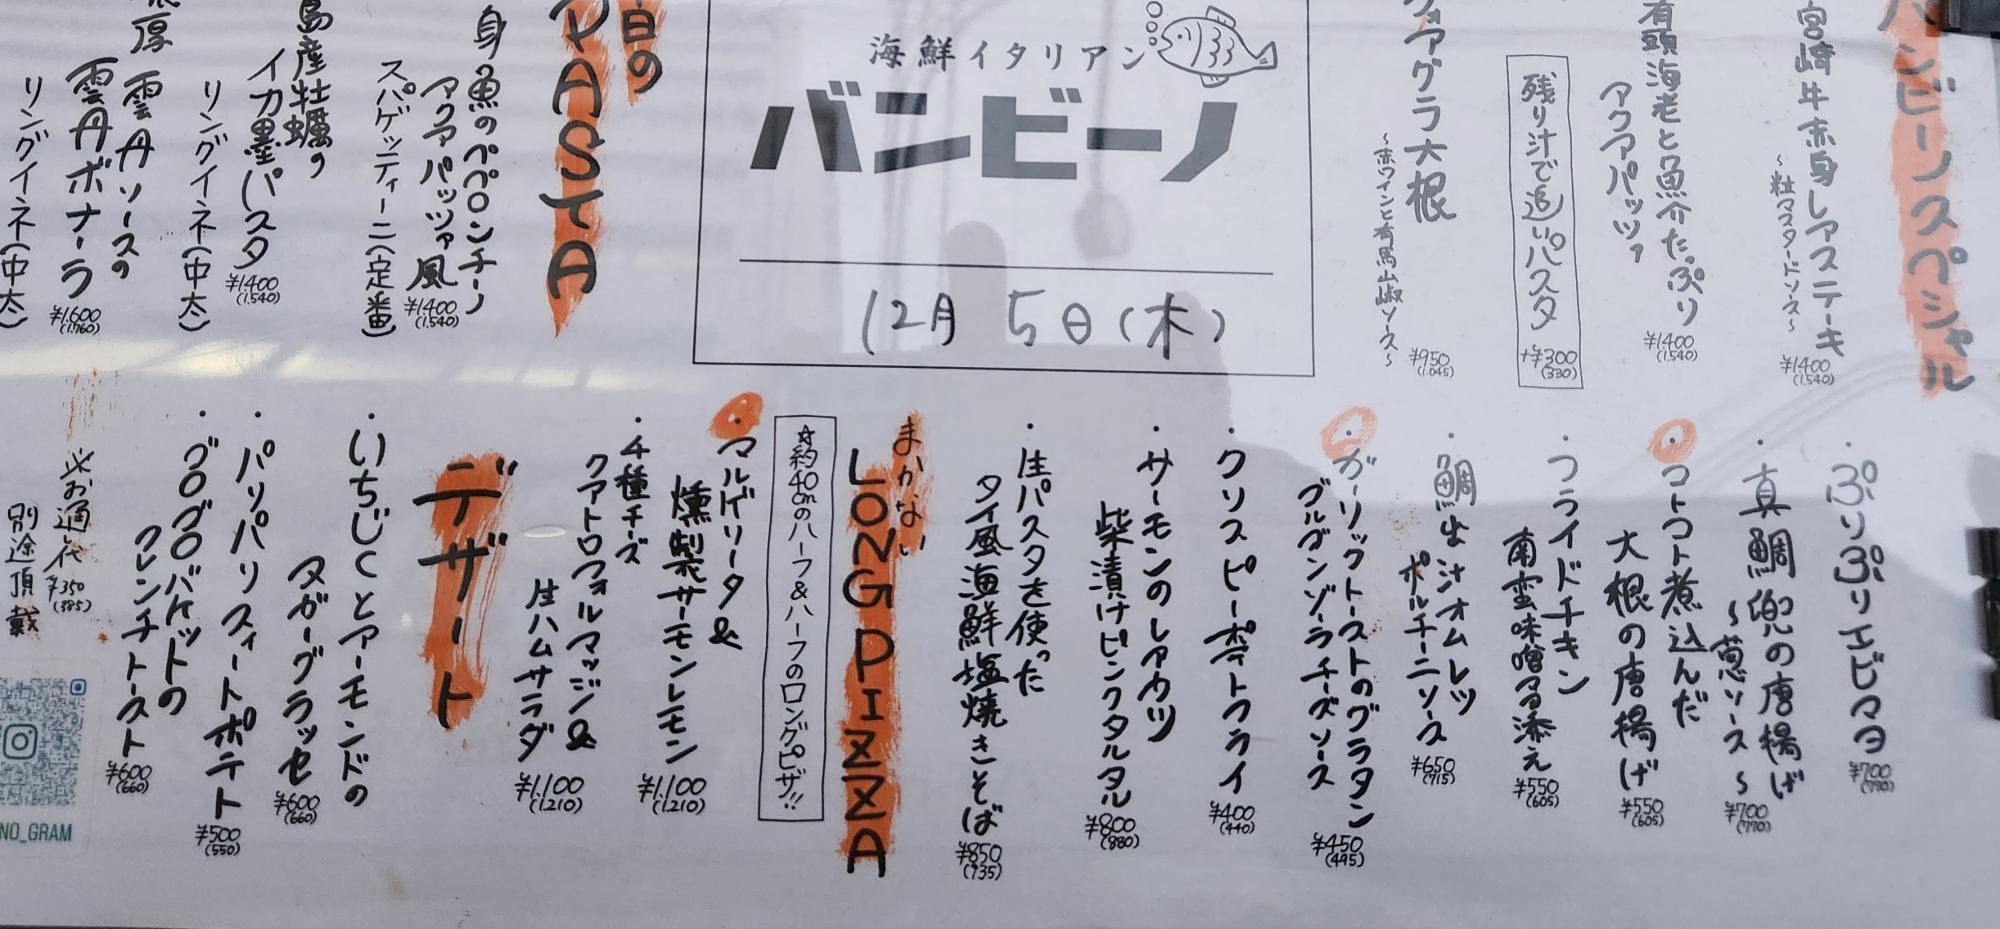 バンビーノスペシャル
宮崎牛赤身レアステーキ
～粒マスタードソース～
¥1400
(1.540)
有頭海老と魚介たっぷり
アクアパッツァ
¥1400
(1.540)
残り汁で追いパスタ
+¥300
(330)
フォアグラ大根
～赤ワインと有馬山椒ソース～
¥950
(1.045)
海鮮イタリアン
バンビーノ
12月 5日(木)
日の
PASTA
身魚のペペロンチーノ
アクアパッツァ風
スパゲッティーニ(定番)
¥1400
(1.540)
島産牡蠣の
イカ墨パスタ
リングイネ(中太)
¥1400
(1.540)
濃厚 雲丹ソースの
雲丹ボナーラ
リングイネ(中太)
¥1.600
(1.760)
・ぷりぷりエビマヨ
¥700
(770)
・真鯛兜の唐揚げ
～葱ソース～
¥700
(770)
・コトコト煮込んだ
大根の唐揚げ
¥550
(605)
・フライドチキン
南蛮味噌タル添え
¥550
(605)
・鯛出汁オムレツ
ポルチーニソース
¥650
(715)
・ガーリックトーストのグラタン
ブルゴンゾーラチーズソース
¥450
(495)
・クリスピーポテトフライ
¥400
(440)
・サーモンのレアカツ
柴漬けピンクタルタル
¥800
(880)
・生パスタを使った
タイ風海鮮塩焼きそば
¥850
(935)
まかない
LONG PIZZA
☆約40cmのハーフ&ハーフのロングピザ!!
・マルゲリータ&
燻製サーモンレモン
¥1.100
(1.210)
・4種チーズ
クアトロフォルマッジ&
生ハムサラダ
¥1.100
(1.210)
デザート
・いちじくとアーモンドの
ヌガーグラッセ
¥600
(660)
・パリパリスイートポテト
¥500
(550)
・ゴロゴロバケットの
フレンチトースト
¥600
(660)
※お通し代 ¥350
(385)
別途頂戴
NO_GRAM